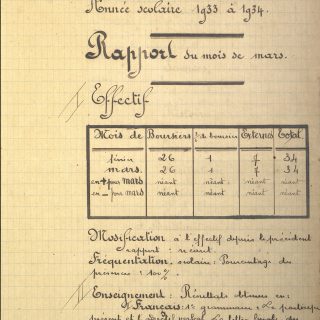 Année scolaire 1933 à 1934.
Rapport du mois de mars.
I Effectif
Mois de Boursiers ½ de boursier Externes Total
février 26 1 7 34
mars. 26 1 7 34
en + pour mars néant néant néant néant
en - pour mars néant néant néant néant
Modification à l'effectif depuis le précédent
rapport : néant.
Fréquentation scolaire : Pourcentage des
présences : 100%
II Enseignement : Résultats obtenus en :
1° Français : 1e
présent et